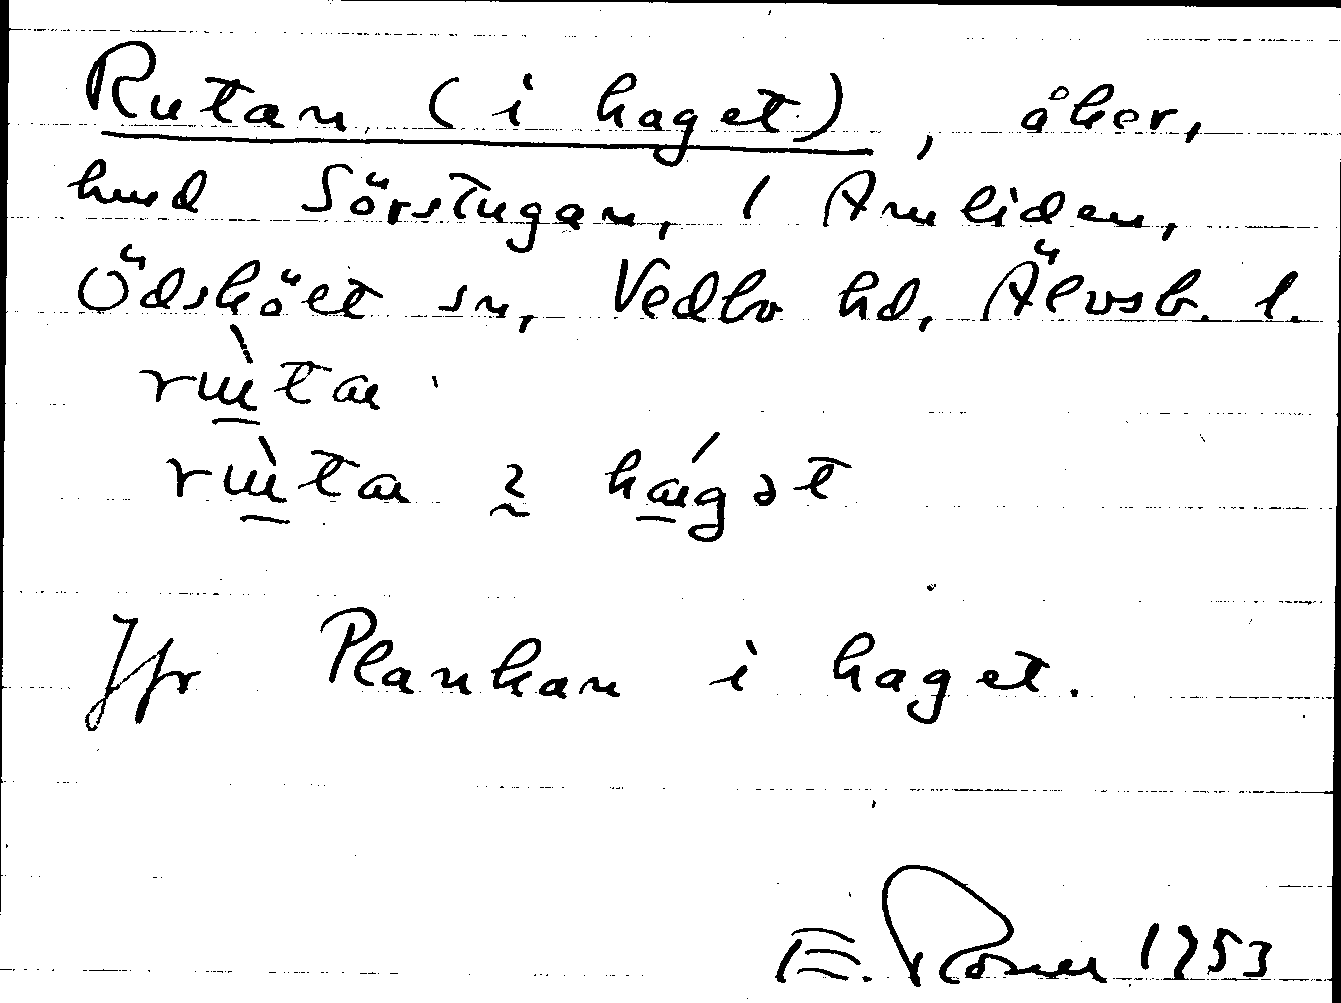 Rutan (i haget), åker,
hmd Sörstugan, 1 Amliden,
Ödskölt sn, Vedbo hd, Älvsb. l.
rùta
rùta 2 hágət
Jfr Plankan i haget.
E. Rosell 1953